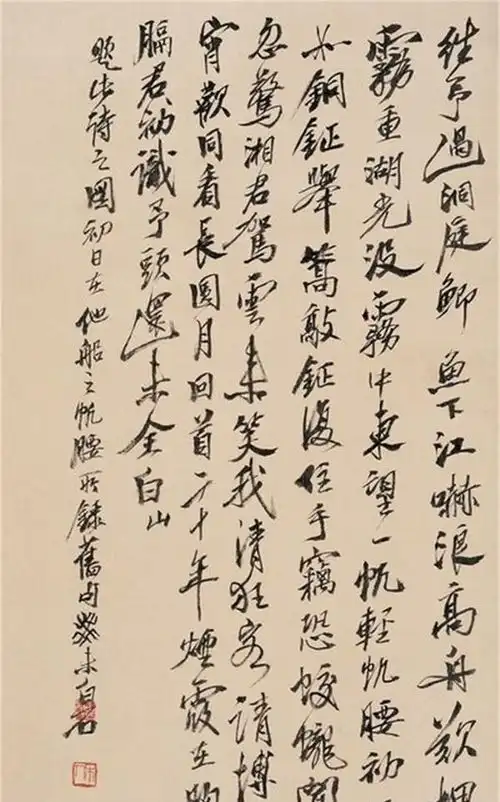 往予過洞庭鯽魚下江嚇浪高舟欲
霧重湖光沒霧中東望一帆輕帆腰初
銅鉦舉篙敲鉦復住手竊恐蛟龍聞
忽驚湘君駕雲來笑我清狂客請博
宵歡同看長圓月回首二十年煙霞在胸
膈君初識予頭還未全白山
題此詩之圖初日在他船之帆腰所錄舊句癸未白石